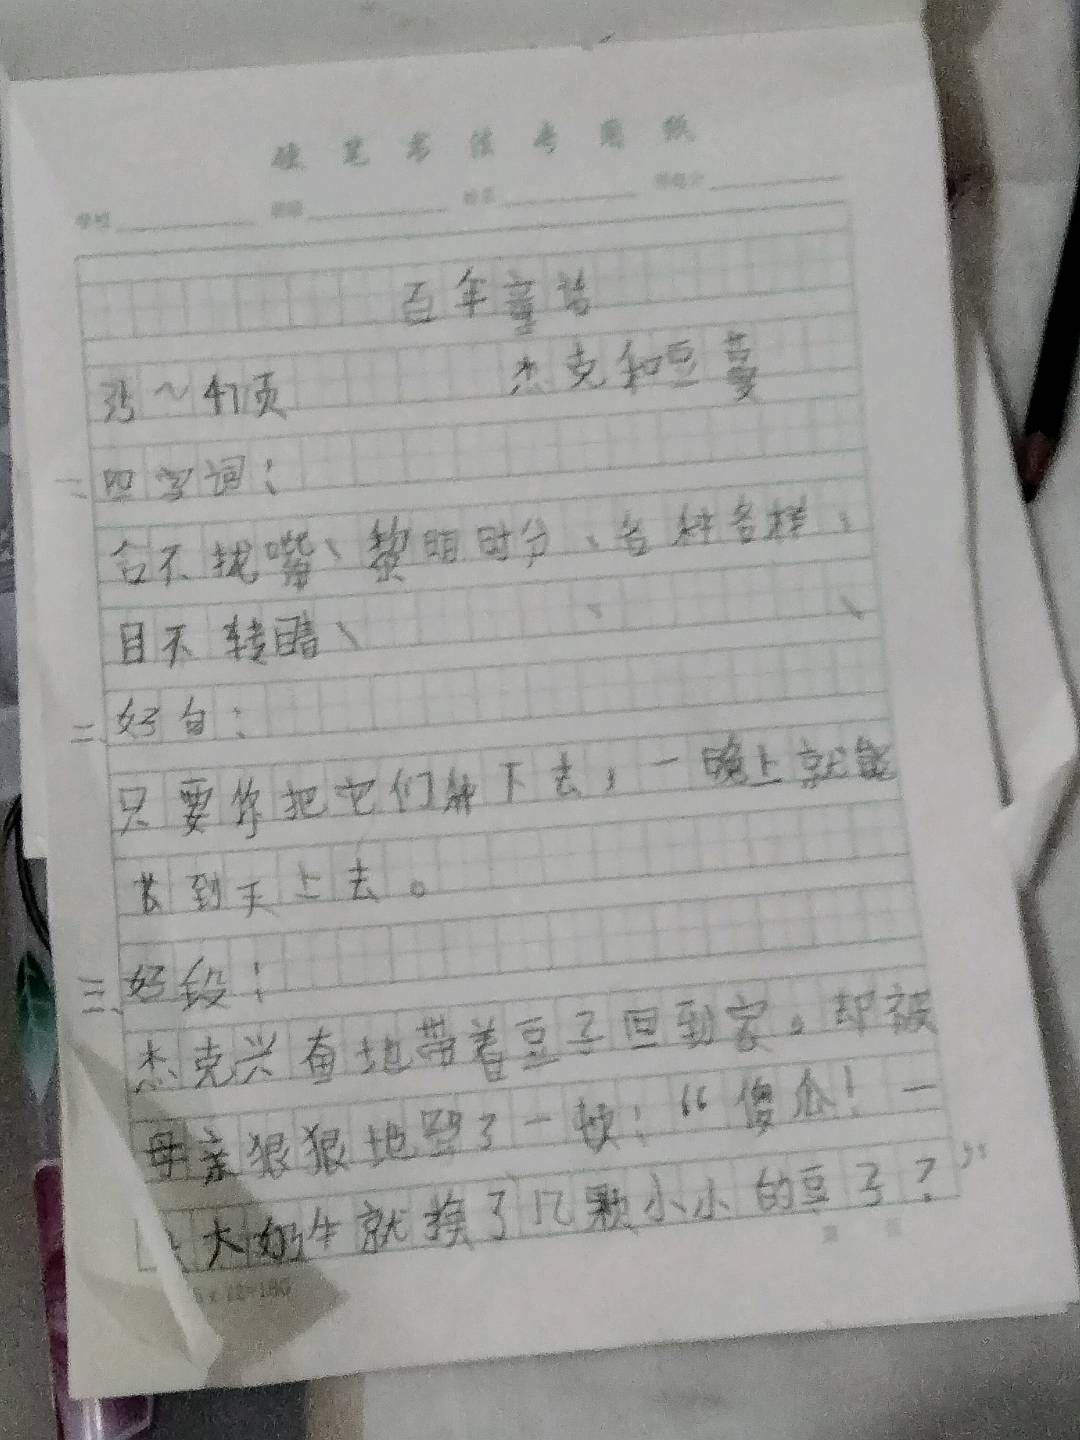 硬笔书法专用纸
百年童话
35～47页 杰克和豆蔓
一、四字词：
合不拢嘴、黎明时分、各种各样、
目不转睛、
二、好句：
只要你把它们种下去，一晚上就能
长到天上去。
三、好段：
杰克兴奋地带着豆子回到家。却被
母亲狠狠地骂了一顿：“傻瓜！一
头大奶牛就换了几颗小小的豆子？”